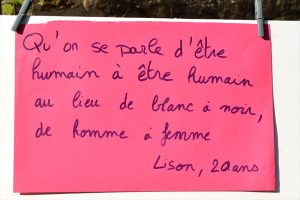 Qu'on se parle d'être
humain à être humain
au lieu de blanc à noir,
de homme à femme
Lison, 20 ans.